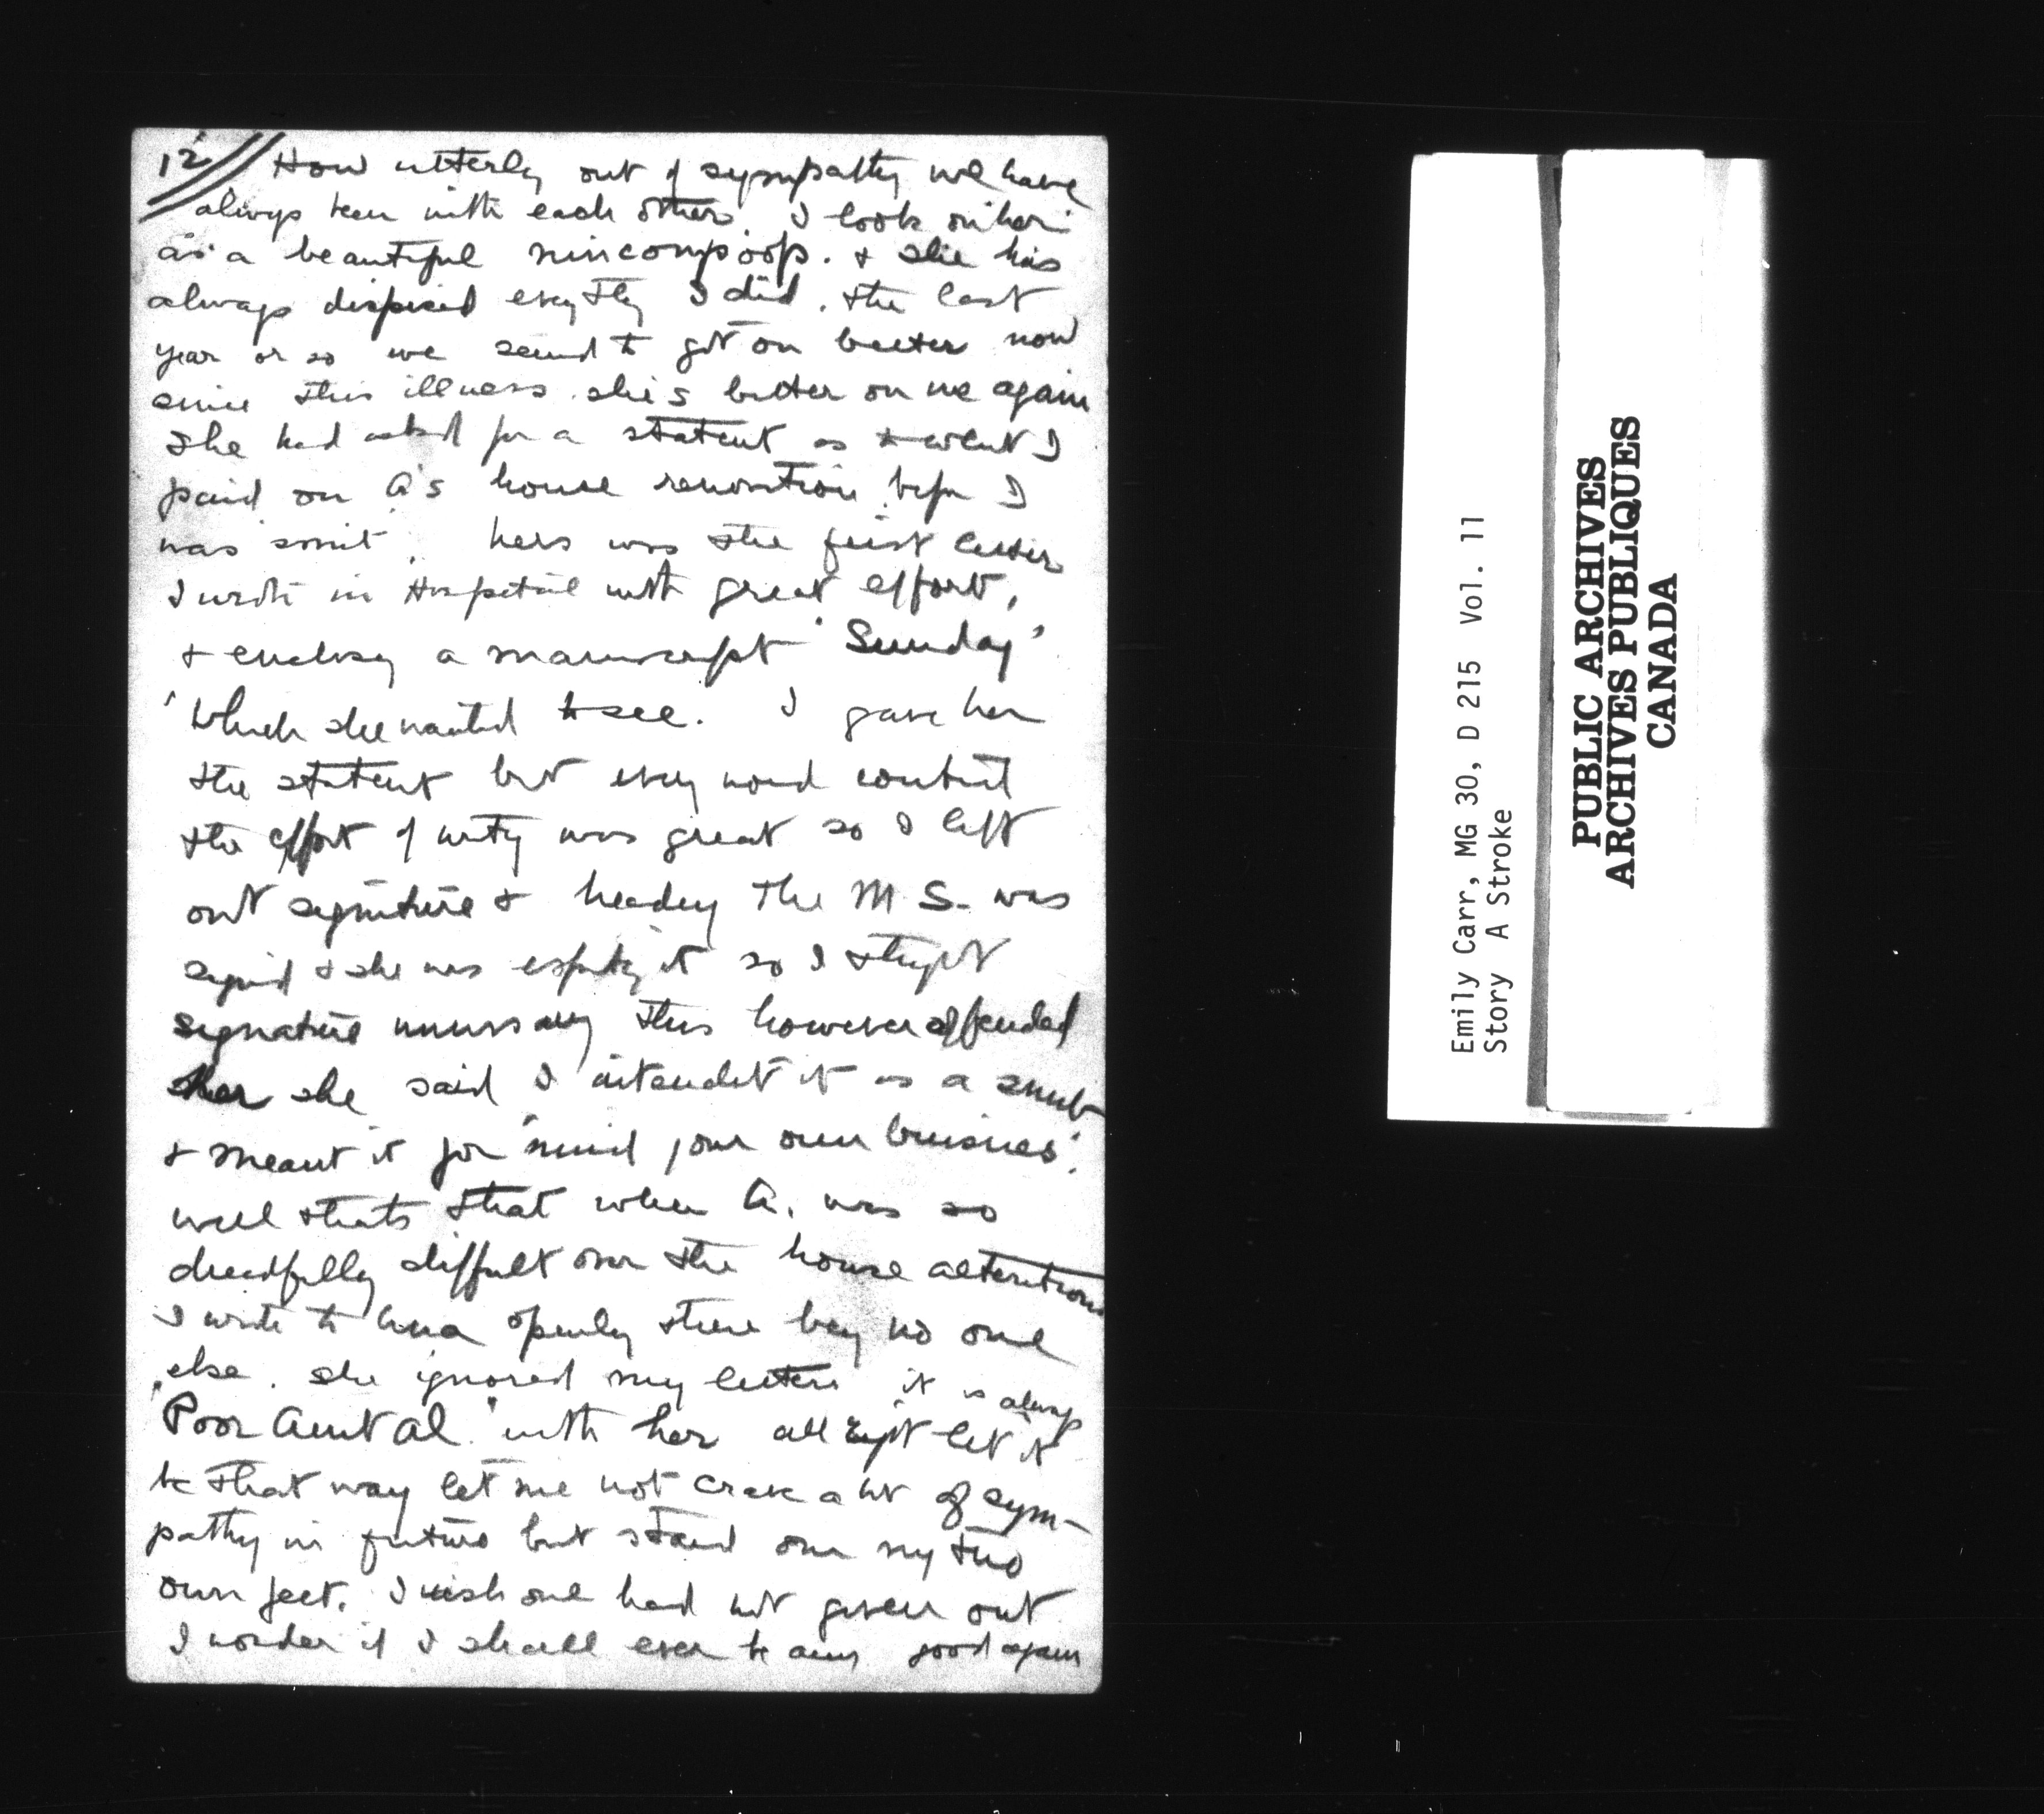 12 How utterly out of sympathy we have
always been with each other. I look on her
as a beautiful nincompoop. & she has
always dispised everythg I did. the last
year or so we seemd to get on better now
since this illness she's bitter on me again
She had asked for a statent as to what I
paid on A's house renovation befor I
was smit. hers was the first letter
I wrote in Hospital with great effort,
& enclosg a manuscript 'Sunday'
which she wanted to see. I gave her
the statent but every word
the effort of writg was great so I left
out signiture & headig The M S. was
signd & she was expectg it so I thught
signature this however offended
her she said I intendet it as a snub
& meant it for "mind your own buisnes".
well thats that when A. was so
dreadfully diffult over the house alterations
I wrote to Una openly there beg no one
else. she ignored my letters it is always
"Poor Aunt Al" with her all right let it
be that way let me not crave a bit of sym-
pathy in future but stand on my two
own feet. I wish one had not given out
I wonder if I shall ever be any good again
Emily Carr, MG 30, D 215 Vol. 11
Story A Stroke
PUBLIC ARCHIVES
ARCHIVES PUBLIQUES
CANADA